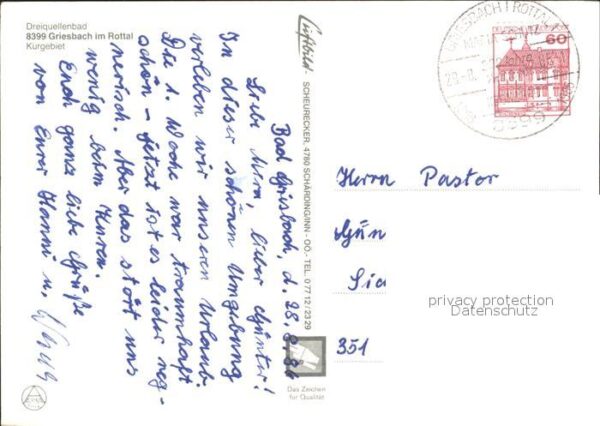 Dreiquellenbad
8399 Griesbach im Rottal
Kurgebiet
Bad Griesbach, d. 28.8.84
Liebe Mira, lieber Günter!
In dieser schönen Umgebung
verleben wir unseren Urlaub.
Die 1. Woche war traumhaft
schön - jetzt ist es leider reg-
nerisch. Aber das stört uns
wenig beim Kuren.
Euch ganz liebe Grüße
von Eurer Hanni u.
Luftbild - SCHEURECKER, 4780 SCHÄRDING/INN - OÖ. - TEL. 07712/2329
Das Zeichen
für Qualität
GRIESBACH I ROTTAL
8399
60
Herrn Pastor
Gün
Sie
351
privacy protection
Datenschutz